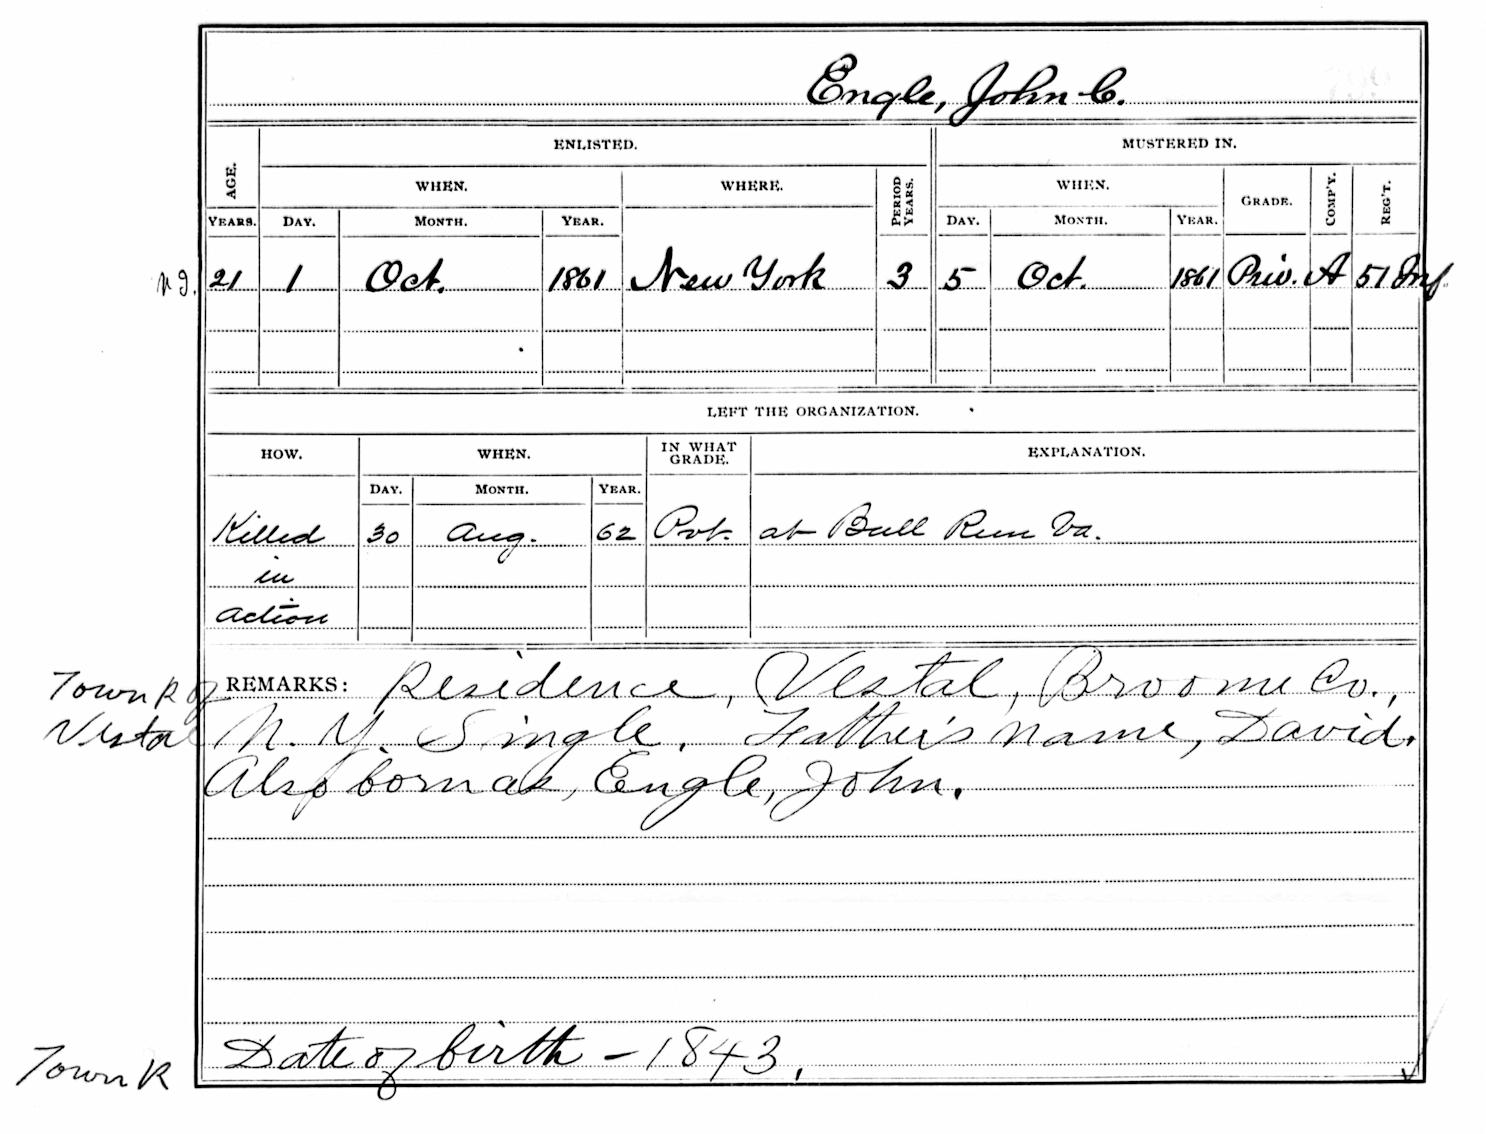 Engle, John C.
ENLISTED. MUSTERED IN.
AGE. WHEN. WHERE. PERIOD YEARS. WHEN. GRADE. COMP'Y. REG'T.
YEARS. DAY. MONTH. YEAR. DAY. MONTH. YEAR.
21 1 Oct. 1861 New York 3 5 Oct. 1861 Priv. A 51 Inf.
LEFT THE ORGANIZATION.
HOW. WHEN. IN WHAT GRADE. EXPLANATION.
DAY. MONTH. YEAR.
Killed 30 Aug. 62 Pvt. at Bull Run Va.
in
action
Town R of REMARKS: Residence, Vestal, Broome Co.,
Vestal N. Y. Single. Father's name, David.
Also borne as, Engle, John.
Date of birth - 1843.
Town R